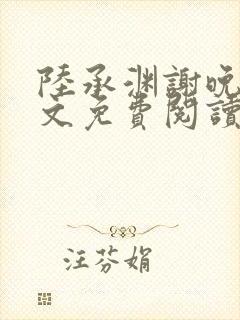 陸承淵謝晚
文免費閱讀
汪芬娟